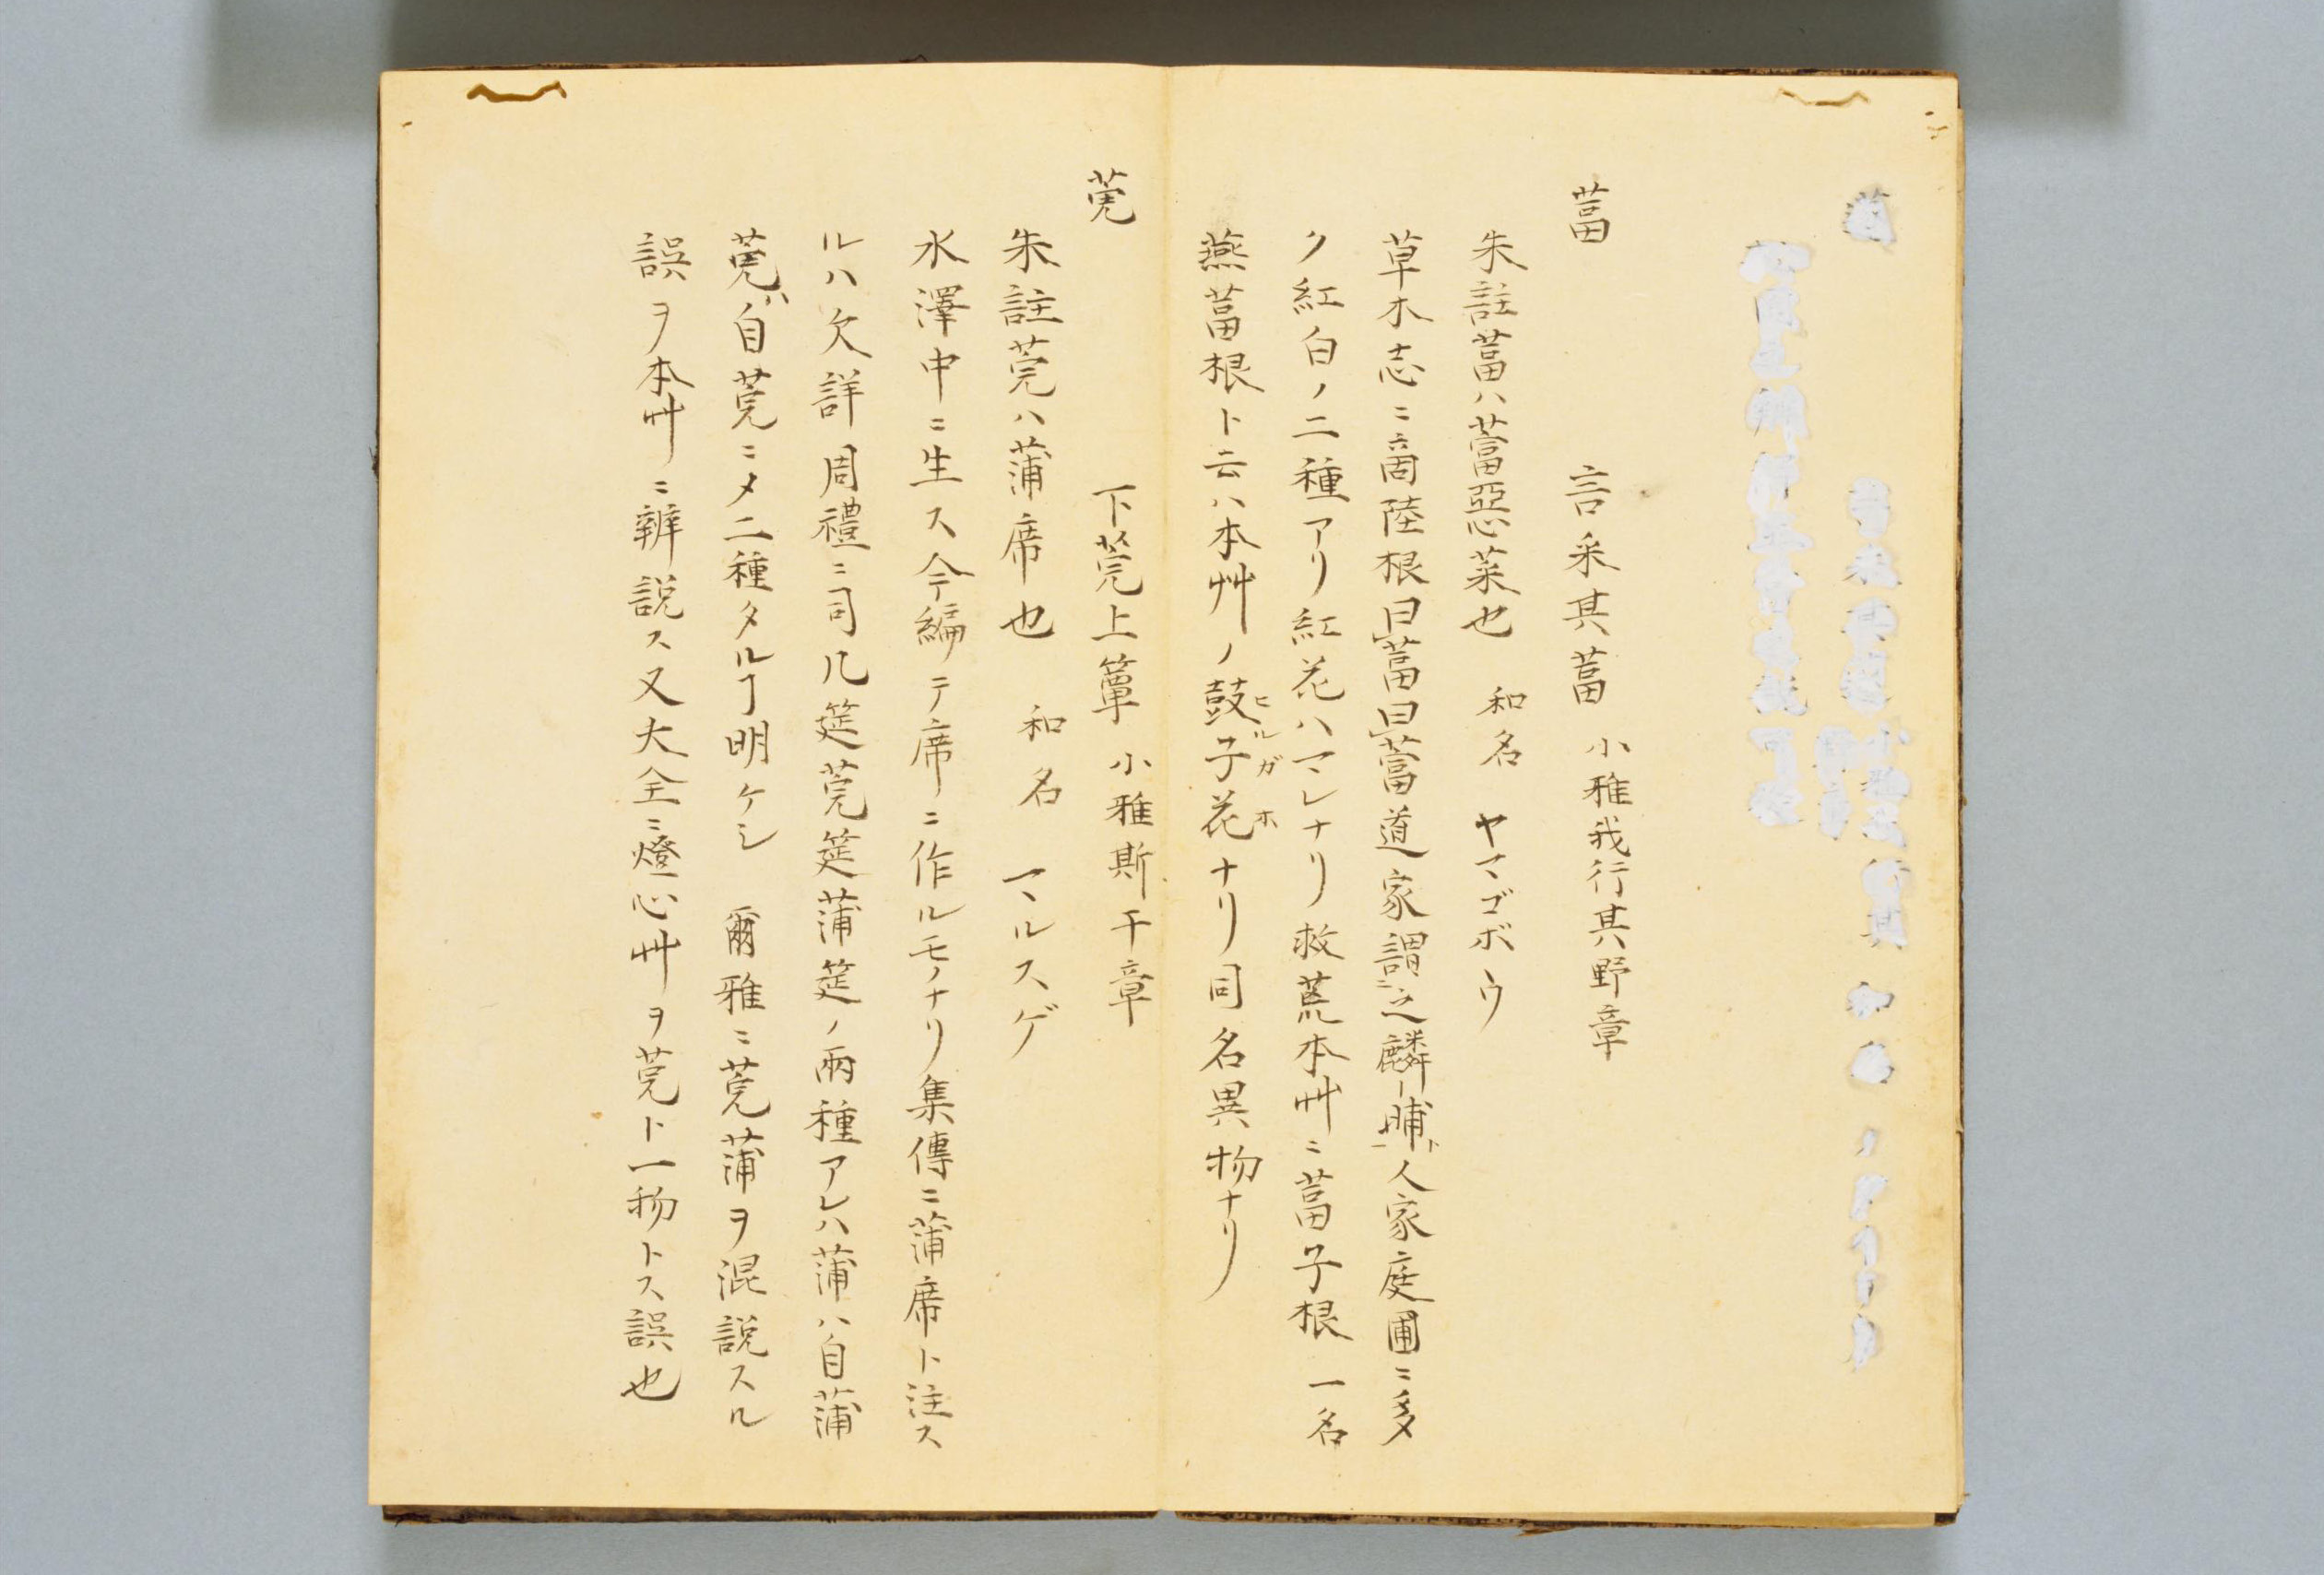 葍
言采其葍 小雅我行其野章
朱註葍ハ䔰惡菜也 和名 ヤマゴボウ
草木志ニ啇陸根曰葍曰䔰道家謂之麟晡ト人家庭圃ニ多
ク紅白ノ二種アリ紅花ハマレナリ救荒本艸ニ葍子根 一名
燕葍根ト云ハ本艸ノ鼓子花ヒルガホナリ同名異物ナリ
莞
下莞上簟 小雅斯干章
朱註莞ハ蒲席也 和名 マルスゲ
水澤中ニ生ス今編テ席ニ作ルモノナリ集傳ニ蒲席ト注ス
ルハ欠詳周禮ニ司几筵莞筵蒲筵ノ兩種アレハ蒲ハ自蒲
莞ハ自莞ニメ二種タルヿ明ケシ 爾雅ニ莞蒲ヲ混説スル
誤ヲ本艸ニ辨説ス又大全ニ燈心艸ヲ莞ト一物トス誤也